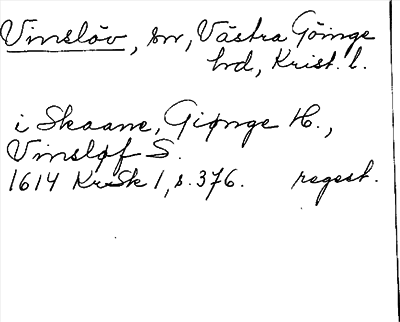 Vinslöv, sn, Västra Göinge
hd, Krist. l.
i Skaane, Giønge H.,
Vinsløf S.
1614 KrSk 1, s. 376. regest.